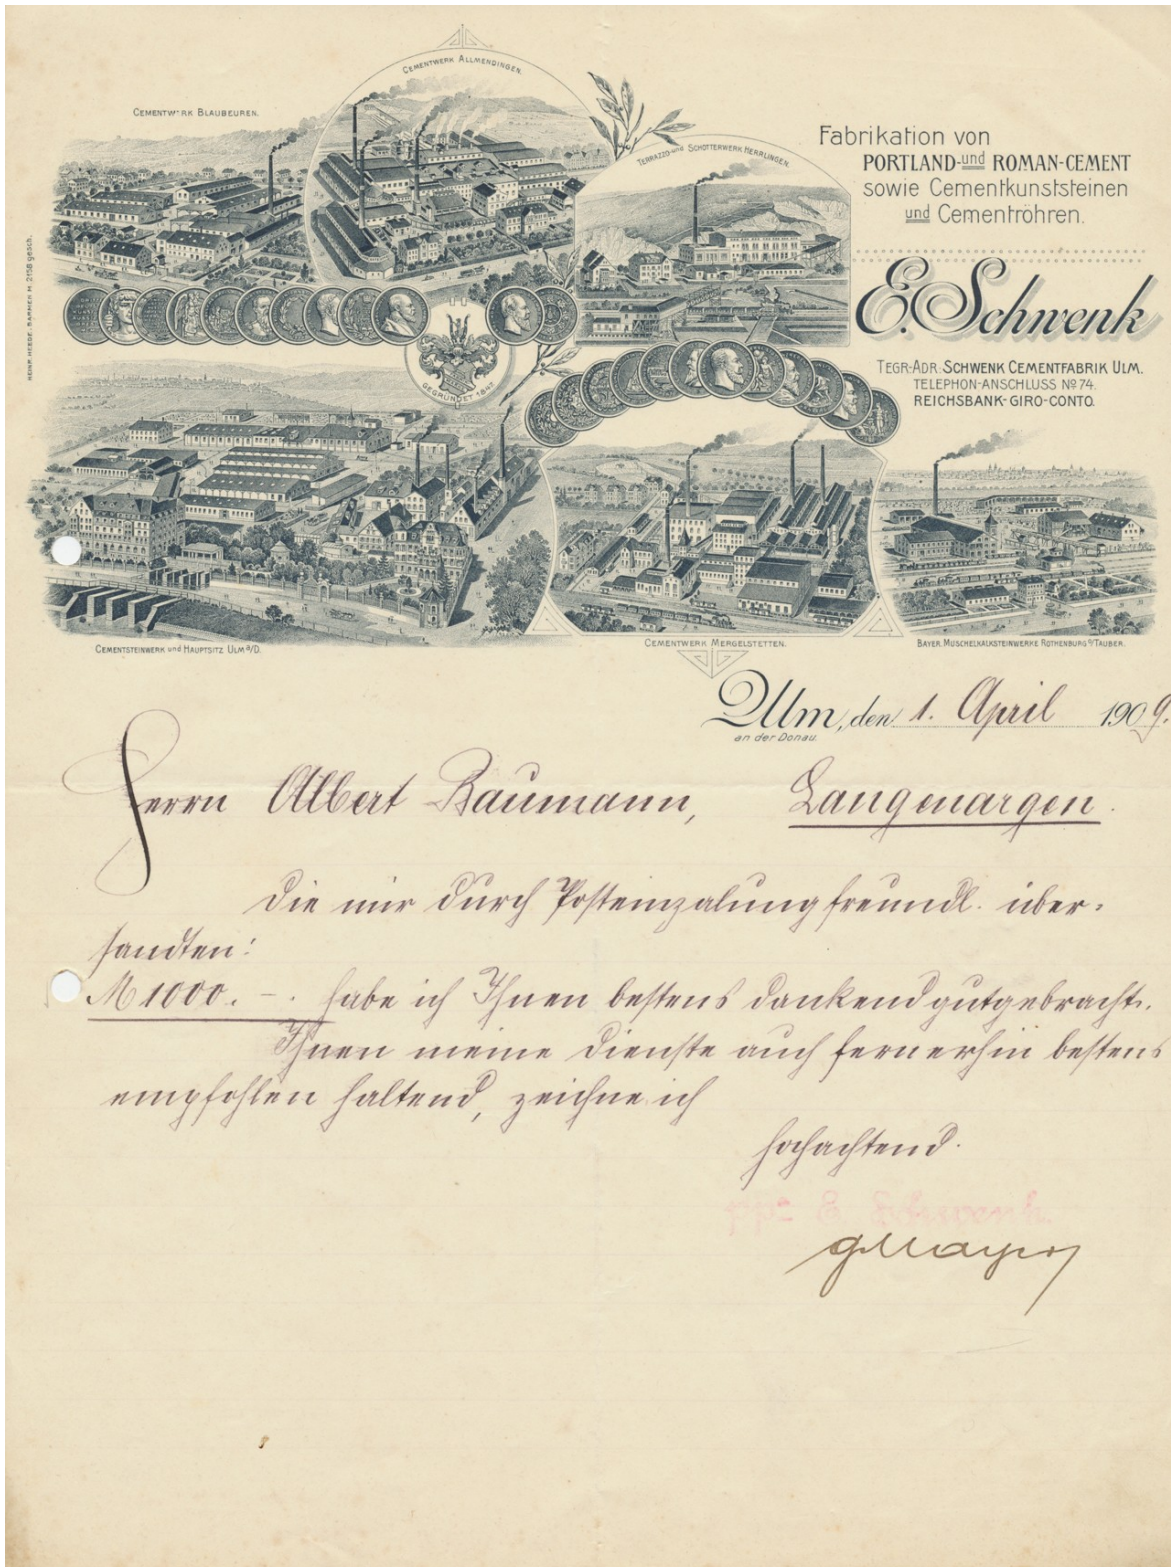 CEMENTWERK ALLMENDINGEN.
CEMENTWERK BLAUBEUREN.
TERRAZZO- und SCHOTTERWERK HERRLINGEN.
Fabrikation von
PORTLAND- und ROMAN-CEMENT
sowie Cementkunststeinen
und Cementröhren.
E. Schwenk
TEGR.-ADR. SCHWENK CEMENTFABRIK ULM.
TELEPHON-ANSCHLUSS No 74.
REICHSBANK-GIRO-CONTO.
HEINR. HEEDE, BARMEN M. 2158 gesch.
GEGRÜNDET 1847
CEMENTSTEINWERK und HAUPTSITZ ULM a/D.
CEMENTWERK MERGELSTETTEN.
BAYER. MUSCHELKALKSTEINWERKE ROTHENBURG o/TAUBER.
Ulm, den 1. April 1909.
an der Donau.
Herrn Albert Baumann, Langenargen.
Die mir durch Posteinzalung freundl. über-
sandten:
M 1000. -. habe ich Ihnen bestens dankend gutgebracht.
Ihnen meine Dienste auch fernerhin bestens
empfohlen haltend, zeichne ich
hochachtend.
ppa E. Schwenk.
G Mayer